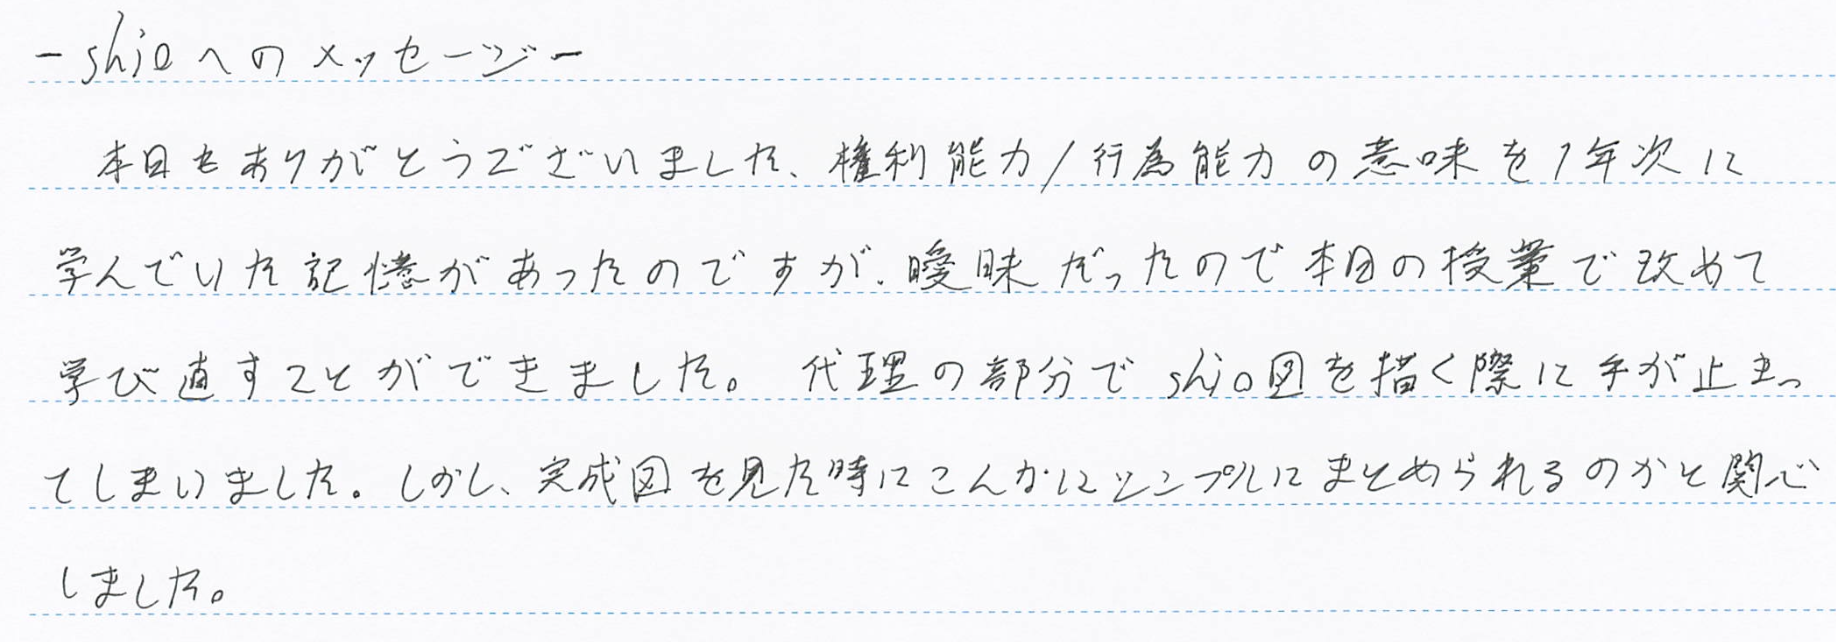 －shioへのメッセージー
本日もありがとうございました、権利能力/行為能力の意味を1年次に
学んでいた記憶があったのですが、曖昧だったので本日の授業で改めて
学び直すことができました。代理の部分でshio図を描く際に手が止まっ
てしまいました。しかし、完成図を見た時にこんなにシンプルにまとめられるのかと関心
しました。